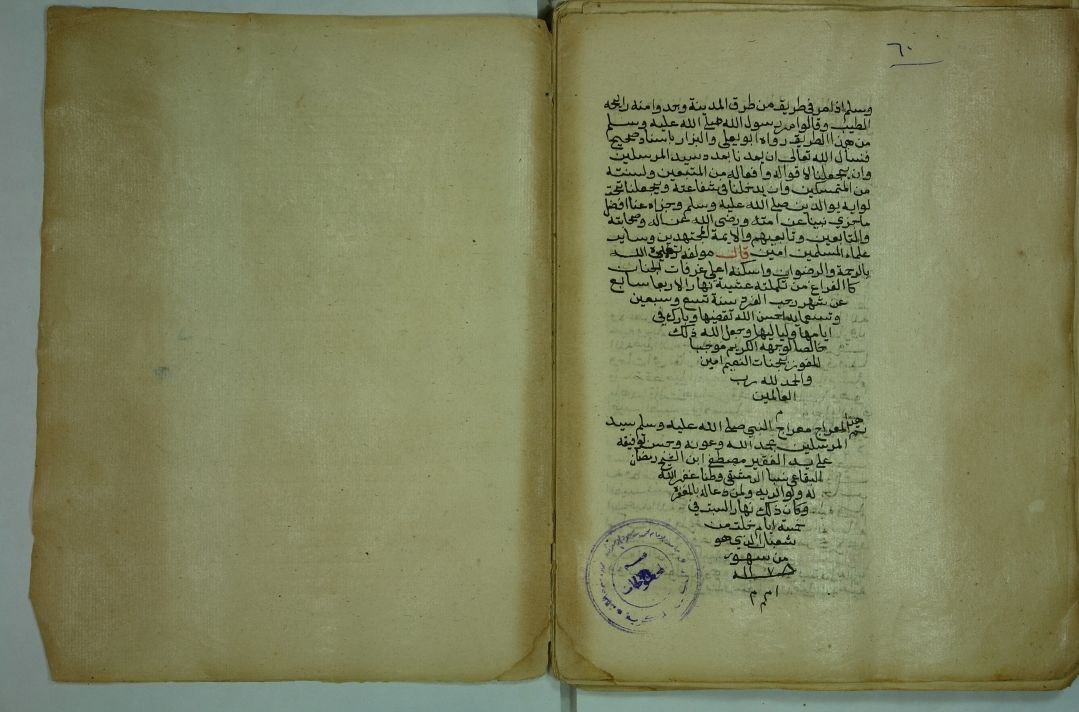 ٦٠
وسلم اذا مر في طريق من طرق المدينة وجدوا منه رايحة
الطيب وقالوا مر رسول الله صلى الله عليه وسلم
من هذا الطريق رواه ابو يعلى والبزار باسناد صحيح
فنسال الله تعالى ان يمدنا بمدد سيد المرسلين
وان يجعلنا لاقواله وافعاله من المتبعين ولسنته
من المتمسكين وان يدخلنا في شفاعته ويجعلنا تحت
لوايه يوم الدين صلى الله عليه وسلم وجزاه عنا افضل
ما جزي نبيا عن امته ورضي الله عن اله وصحابته
والتابعين وتابعيهم والايمة المجتهدين وساير
علماء المسلمين امين قال مولفه تغمده الله
بالرحمة والرضوان واسكنه اعلى غرفات الجنان
كان الفراغ من تكملته عشية نهار الاربعا سابع
عن شهر رجب الفرد سنة تسع وسبعين
وتسعماية احسن الله تقضيها وبارك في
ايامها ولياليها وجعل الله ذلك
خالصا لوجهه الكريم موجبا
للفوز بجنات النعيم امين
والحمد لله رب
العالمين
م
تم المعراج معراج النبي صلى الله عليه وسلم سيد
المرسلين بحمد الله وعونه وحسن توفيقه
على يد الفقير مصطفى ابن الشيخ رمضان
البقاعي نسبا الدمشقي وطنا غفر الله
له ولوالديه ولمن دعا له بالمغفرة
وكان ذلك نهار السبت في
خمسة ايام خلت من
شعبان الذي هو
من سهور
الله
امين م